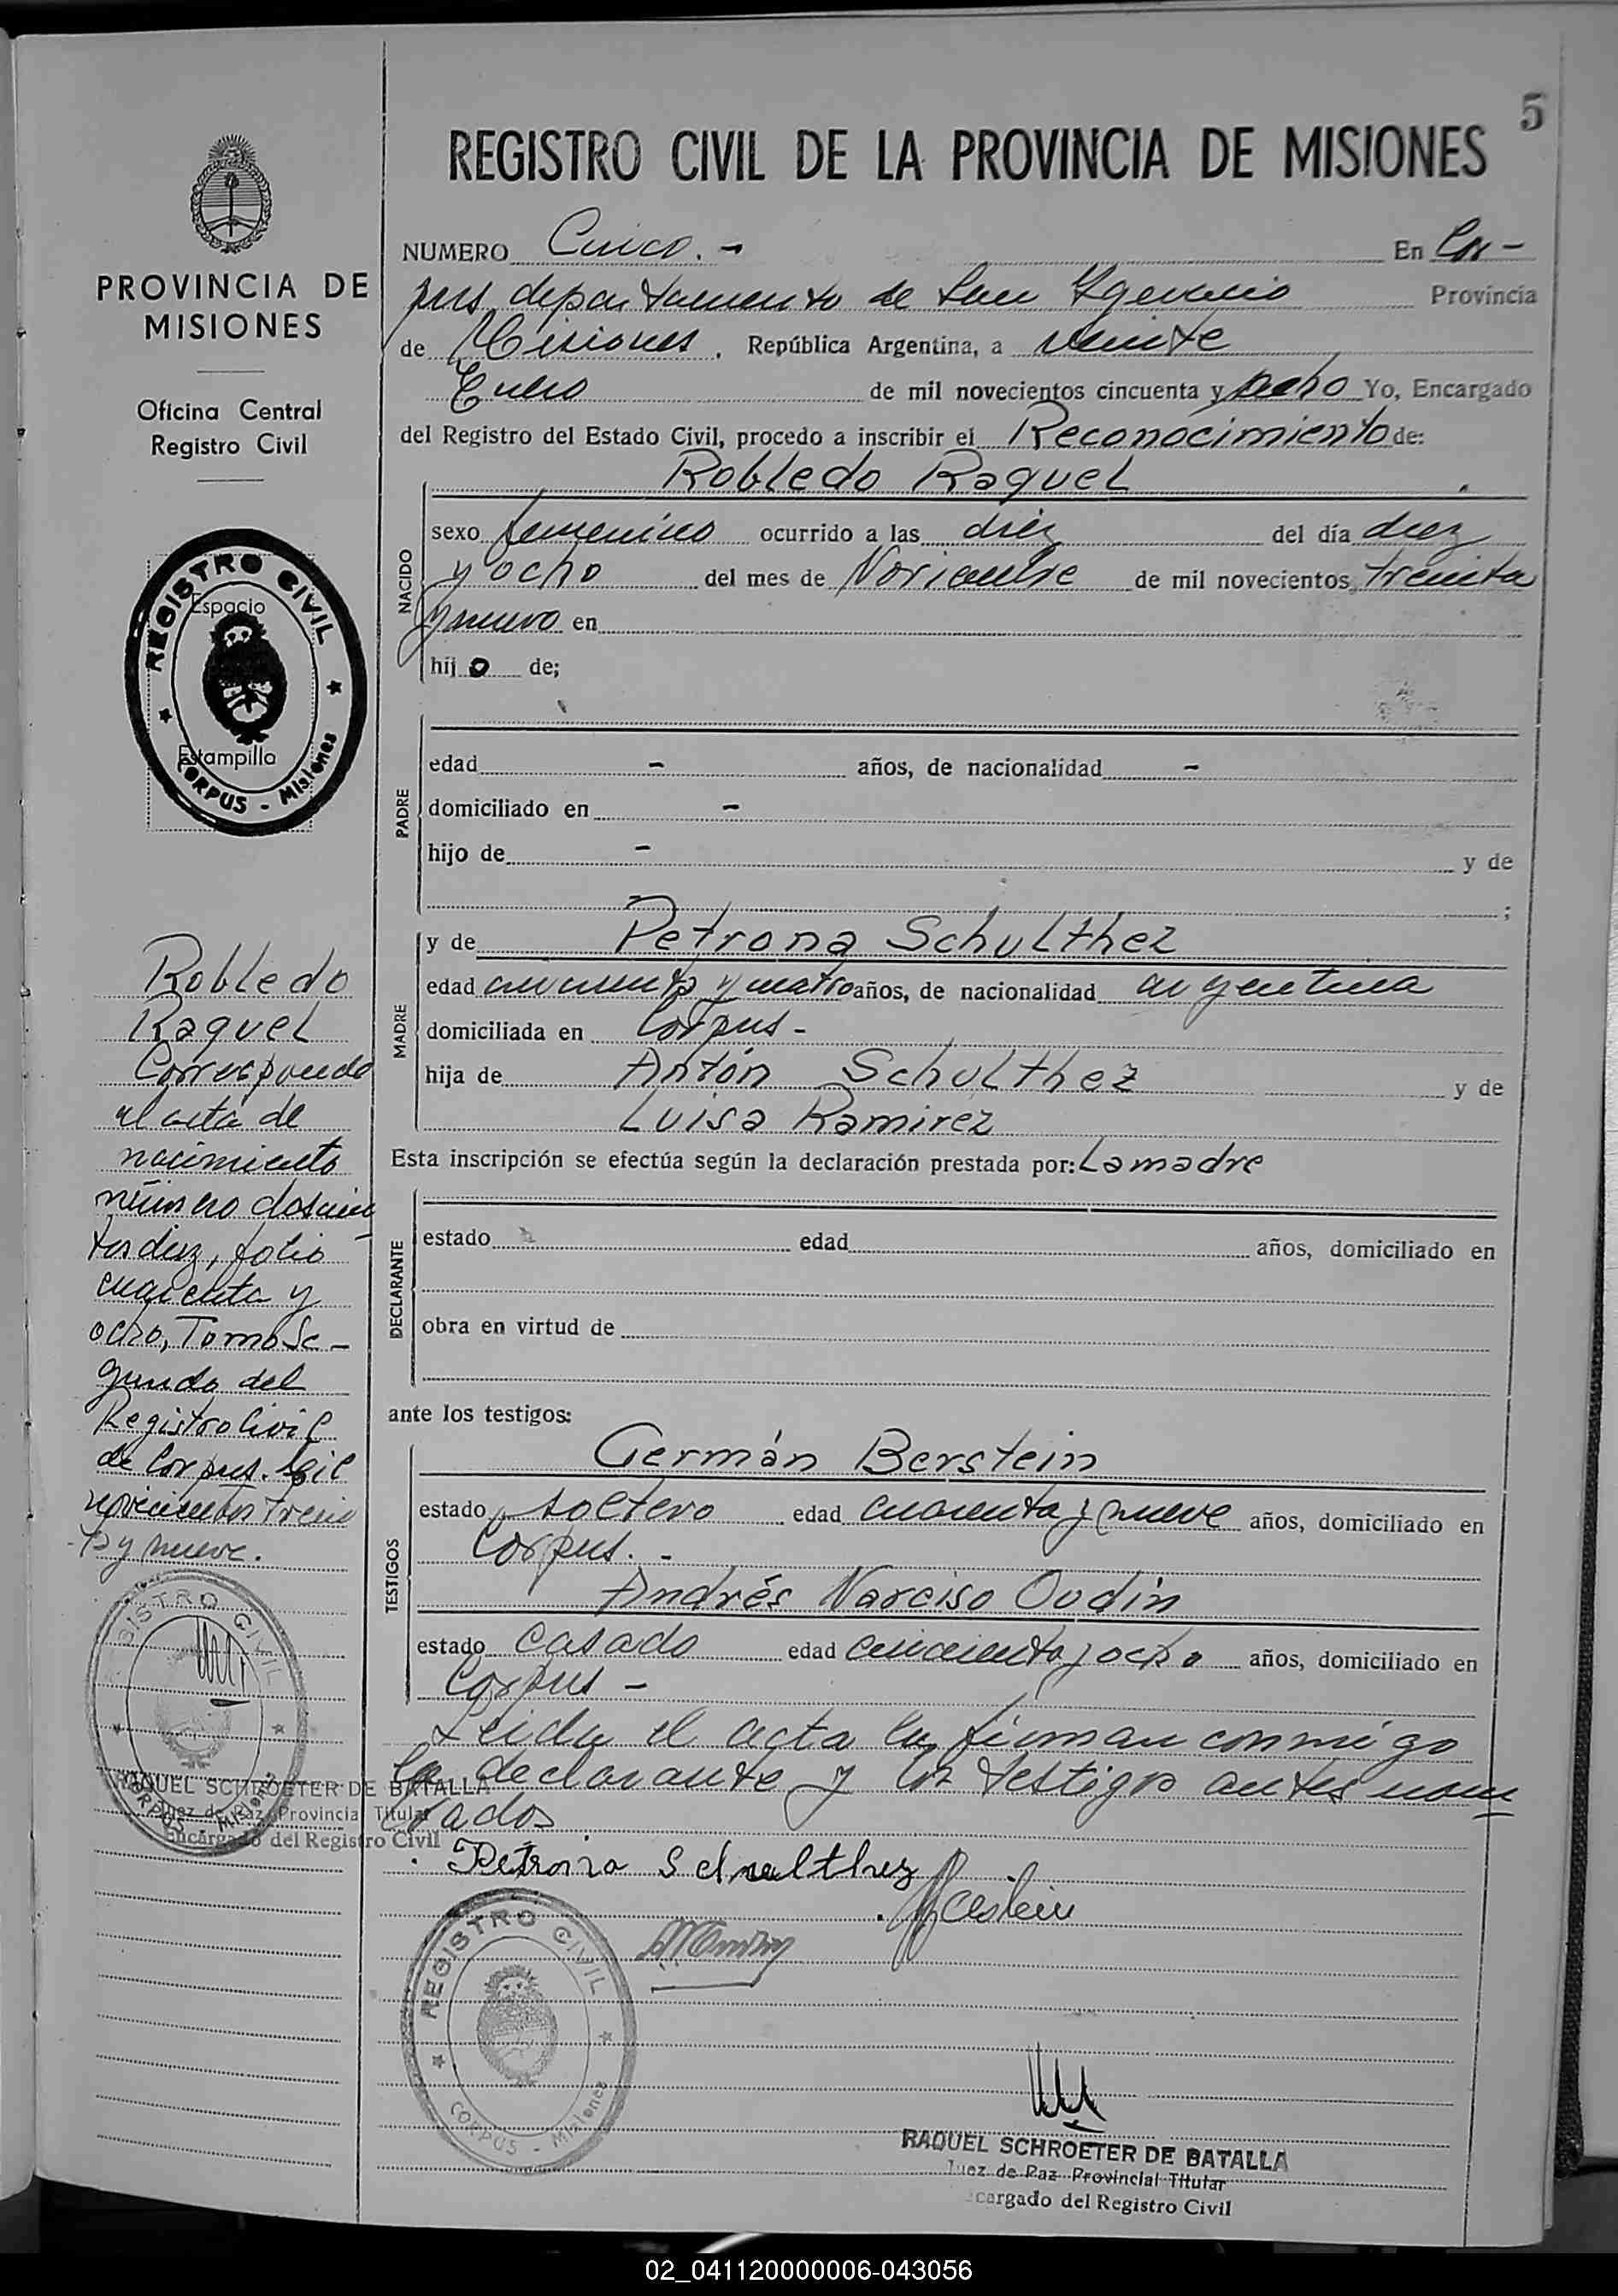 5
REGISTRO CIVIL DE LA PROVINCIA DE MISIONES
NUMERO Cinco. - En Cor-
pus departamento de San Ignacio Provincia
de Misiones, República Argentina, a veinte
Enero de mil novecientos cincuenta y ocho Yo, Encargado
del Registro del Estado Civil, procedo a inscribir el Reconocimiento de:
Robledo Raquel
NACIDO
sexo femenino ocurrido a las diez del día diez
y ocho del mes de Noviembre de mil novecientos treinta
y nueve en
hijo de;
PADRE
edad - años, de nacionalidad -
domiciliado en -
hijo de - y de
;
MADRE
y de Petrona Schulthez
edad cincuenta y cuatro años, de nacionalidad argentina
domiciliada en Corpus -
hija de Antón Schulthez y de
Luisa Ramirez
Esta inscripción se efectúa según la declaración prestada por: La madre
DECLARANTE
estado edad años, domiciliado en
obra en virtud de
ante los testigos:
TESTIGOS
Germán Berstein
estado soltero edad cuarenta y nueve años, domiciliado en
Corpus. -
Andrés Narciso Oudin
estado casado edad cincuenta y ocho años, domiciliado en
Corpus -
Leida el acta la firman conmigo
la declarante y los testigos antes nom
brados
Petrona Schulthez
RAQUEL SCHROETER DE BATALLA
Juez de Paz Provincial Titular
cargado del Registro Civil
REGISTRO CIVIL
CORPUS - Misiones
PROVINCIA DE
MISIONES
Oficina Central
Registro Civil
REGISTRO CIVIL
Espacio
Estampilla
CORPUS - Misiones
Robledo
Raquel
Corresponde
al acta de
nacimiento
número doscien
tos diez, folio
cuarenta y
ocho, Tomo Se-
gundo del
Registro Civil
de Corpus. Mil
novecientos trein
ta y nueve.
GISTRO CIVIL
CORPUS - Misiones
RAQUEL SCHROETER DE BATALLA
Juez de Paz Provincial Titular
Encargado del Registro Civil
02_041120000006-043056